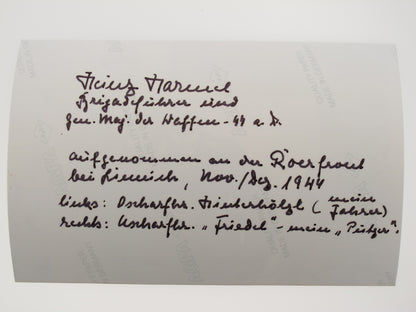 Heinz Harmel
Brigadeführer und
Gen. Maj. der Waffen-SS a. D.
aufgenommen an der Roerfront
bei Linnich, Nov./Dez. 1944
links: Oscharfhr. Hinterhölzl (mein Fahrer)
rechts: Uscharfhr. „Friedel" - mein „Putzer".